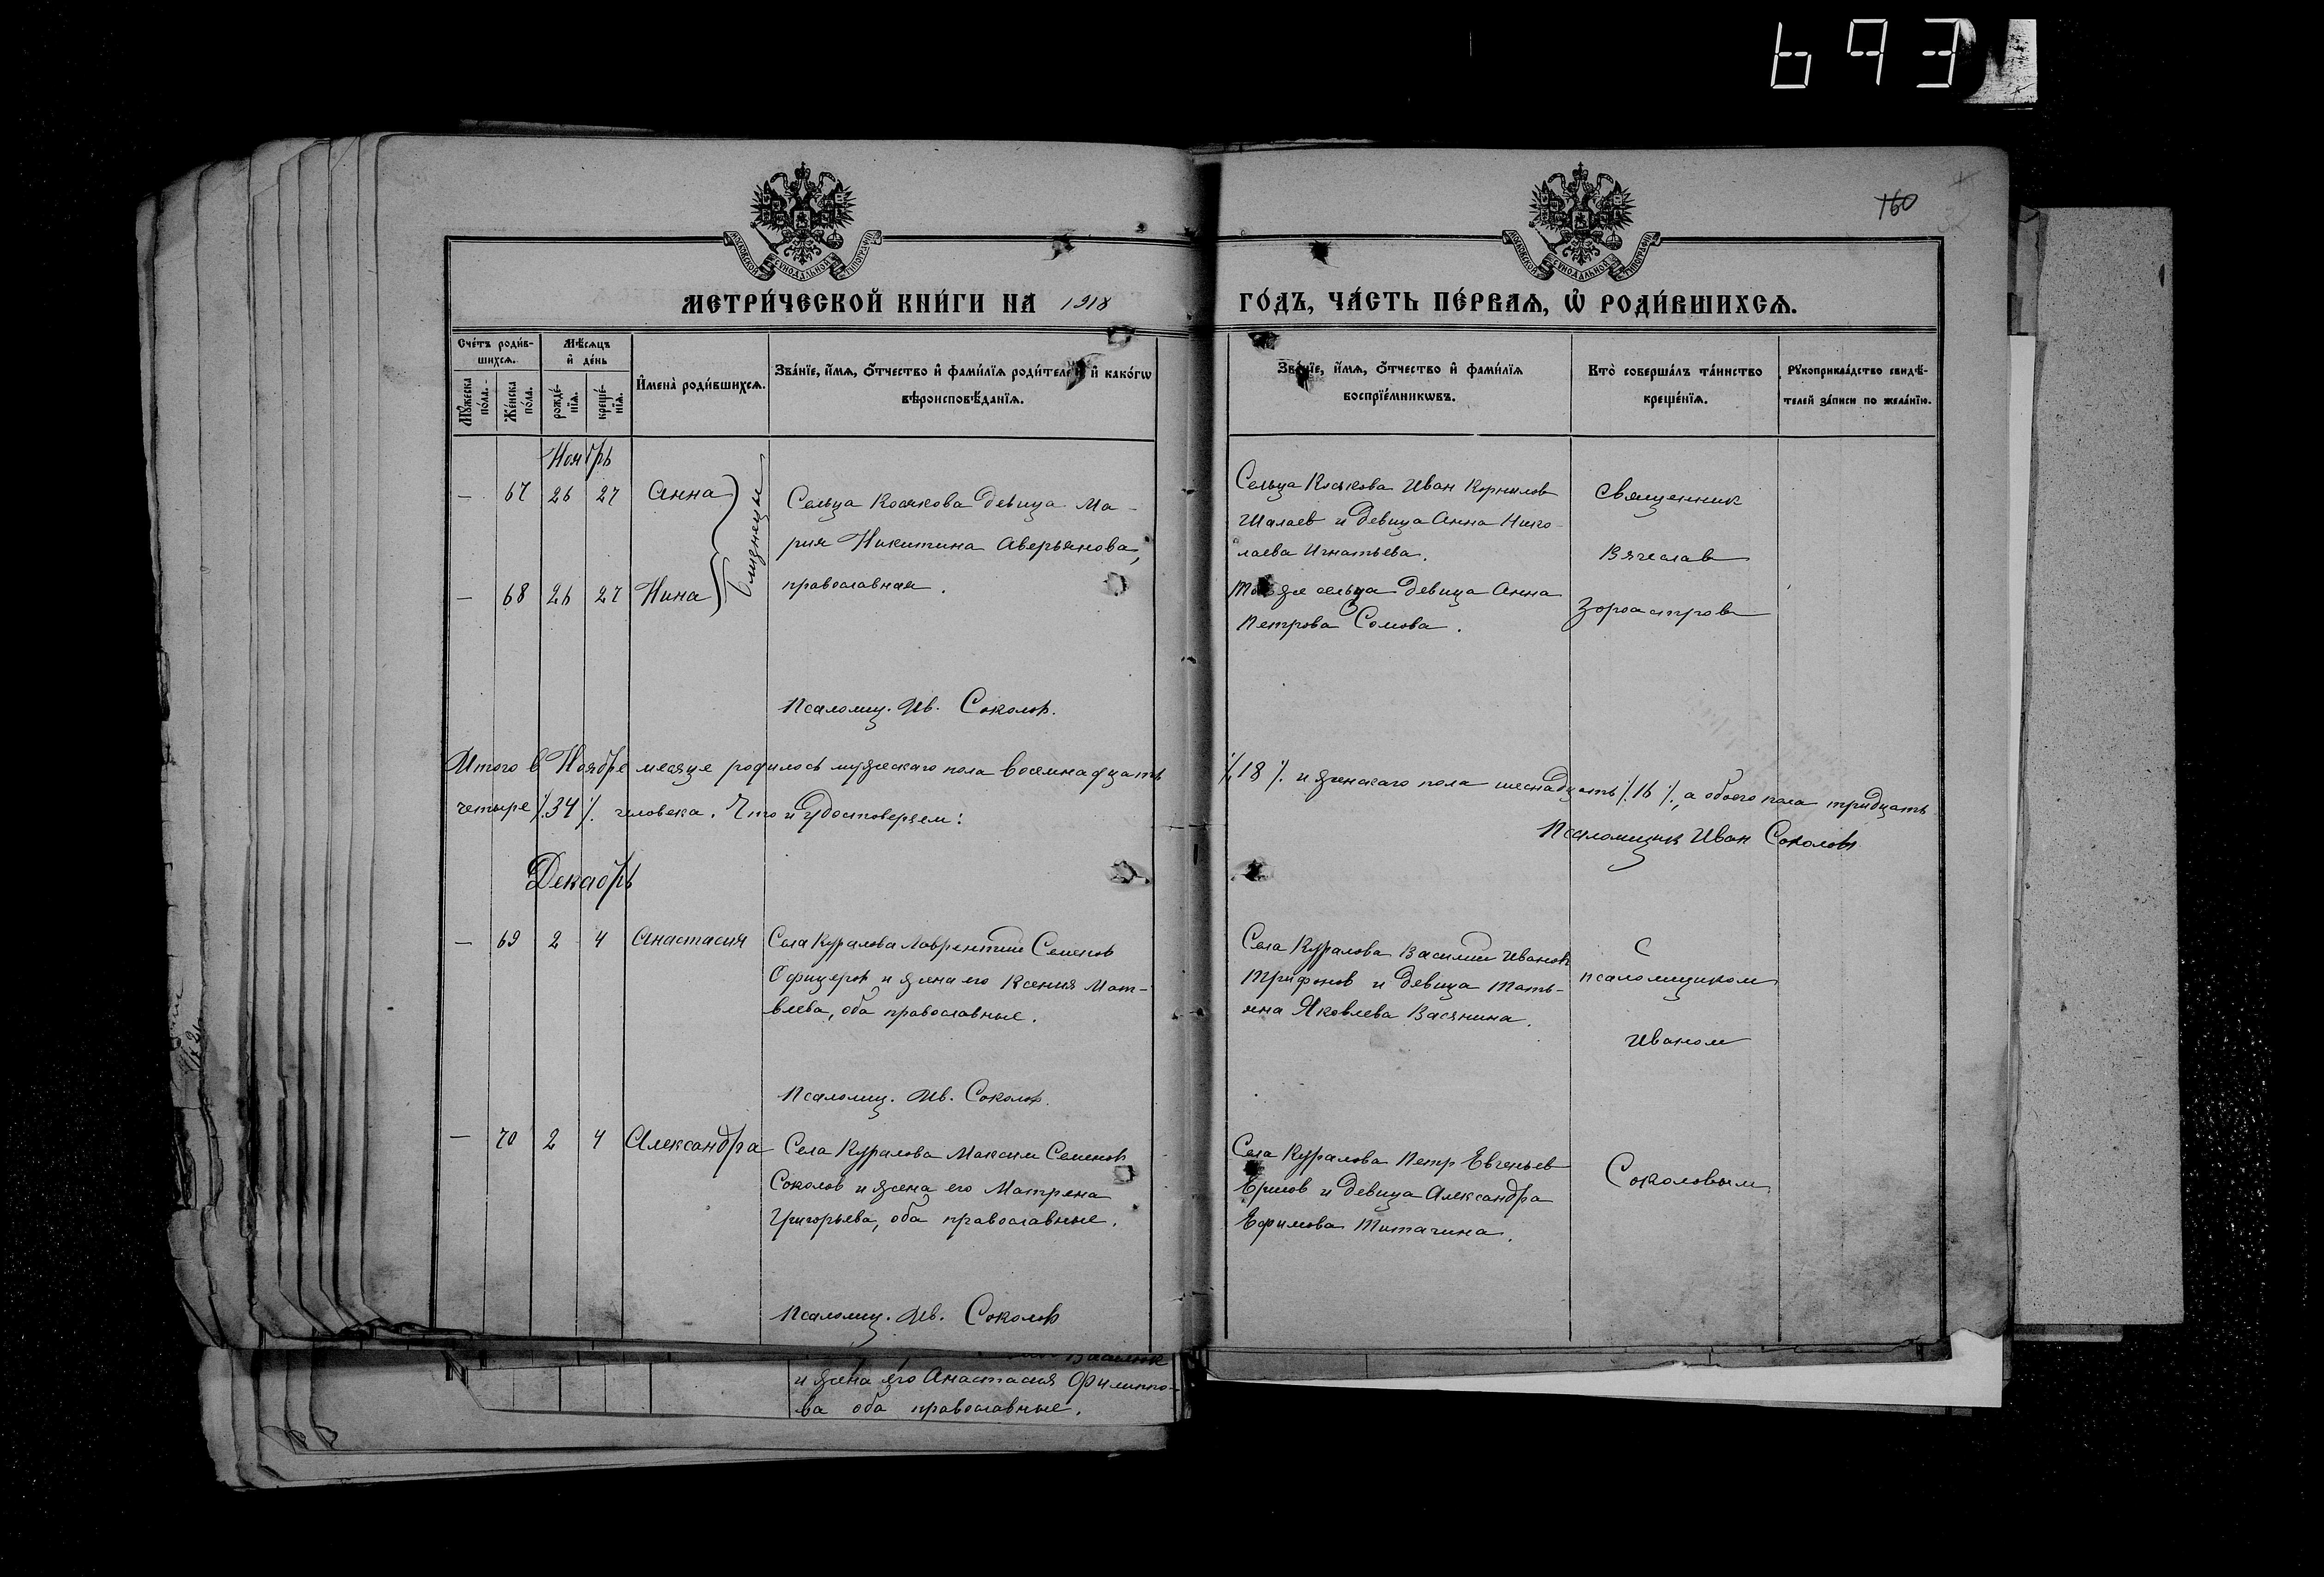 693
160
МОСКОВСКОЙ СѴНОДАЛЬНОЙ ТИПОГРАФІИ
МОСКОВСКОЙ СѴНОДАЛЬНОЙ ТИПОГРАФІИ
МЕТРИ́ЧЕСКОЙ КНИ́ГИ НА 1918
ГО́ДЪ, ЧА́СТЬ ПЕ́РВАѦ, Ѡ҆ РОДИ́ВШИХСѦ.
Сче́тъ роди́в-
шихсѧ.
Мѣ́сѧцъ
и҆ де́нь
Мꙋ́жеска по́ла.
Же́нска по́ла.
рожде́-
нїѧ.
креще́-
нїѧ.
И҆мена̀ роди́вшихсѧ.
Зва́нїе, и҆́мѧ, о҆́тчество и҆ фами́лїѧ роди́телей и҆ како́гѡ
вѣроисповѣ́данїѧ.
Зва́нїе, и҆́мѧ, о҆́тчество и҆ фами́лїѧ
воспрїе́мникѡвъ.
Кто̀ соверша́лъ та́инство
креще́нїѧ.
Рꙋкоприкла́дство свидѣ́-
телей за́писи по жела́нїю.
Ноябрь
— 67 26 27 Анна
— 68 26 27 Нина
близнецы
Сельца Косякова девица Ма-
рия Никитина Аверьянова,
православная.
Сельца Косякова Иван Корнилов
Шалаев и девица Анна Нико-
лаева Игнатьева.
Того же сельца девица Анна
Петрова Сомова.
Священник
Вячеслав
Зороастров
Псаломщ. Ив. Соколов.
Итого в Ноябре месяце родилось мужескаго пола восемнадцать
⁒ 18 ⁒ и женскаго пола шеснадцать ⁒ 16 ⁒, а обоего пола тридцать
четыре ⁒ 34 ⁒ человека. Что и удостоверяем:
Псаломщик Иван Соколов
Декабрь
— 69 2 4 Анастасия
Села Куралова Лаврентий Семенов
Офицеров и жена его Ксения Мат-
веева, оба православные.
Села Куралова Василий Иванов
Трифонов и девица Тать-
яна Яковлева Васянина.
С
псаломщиком
Иваном
Псаломщ. Ив. Соколов.
— 70 2 4 Александра
Села Куралова Максим Семенов
Соколов и жена его Матрена
Григорьева, оба православные.
Села Куралова Петр Евгеньев
Ершов и девица Александра
Ефимова Титагина.
Соколовым
Псаломщ. Ив. Соколов
и жена его Анастасия Филиппо-
ва оба православные.